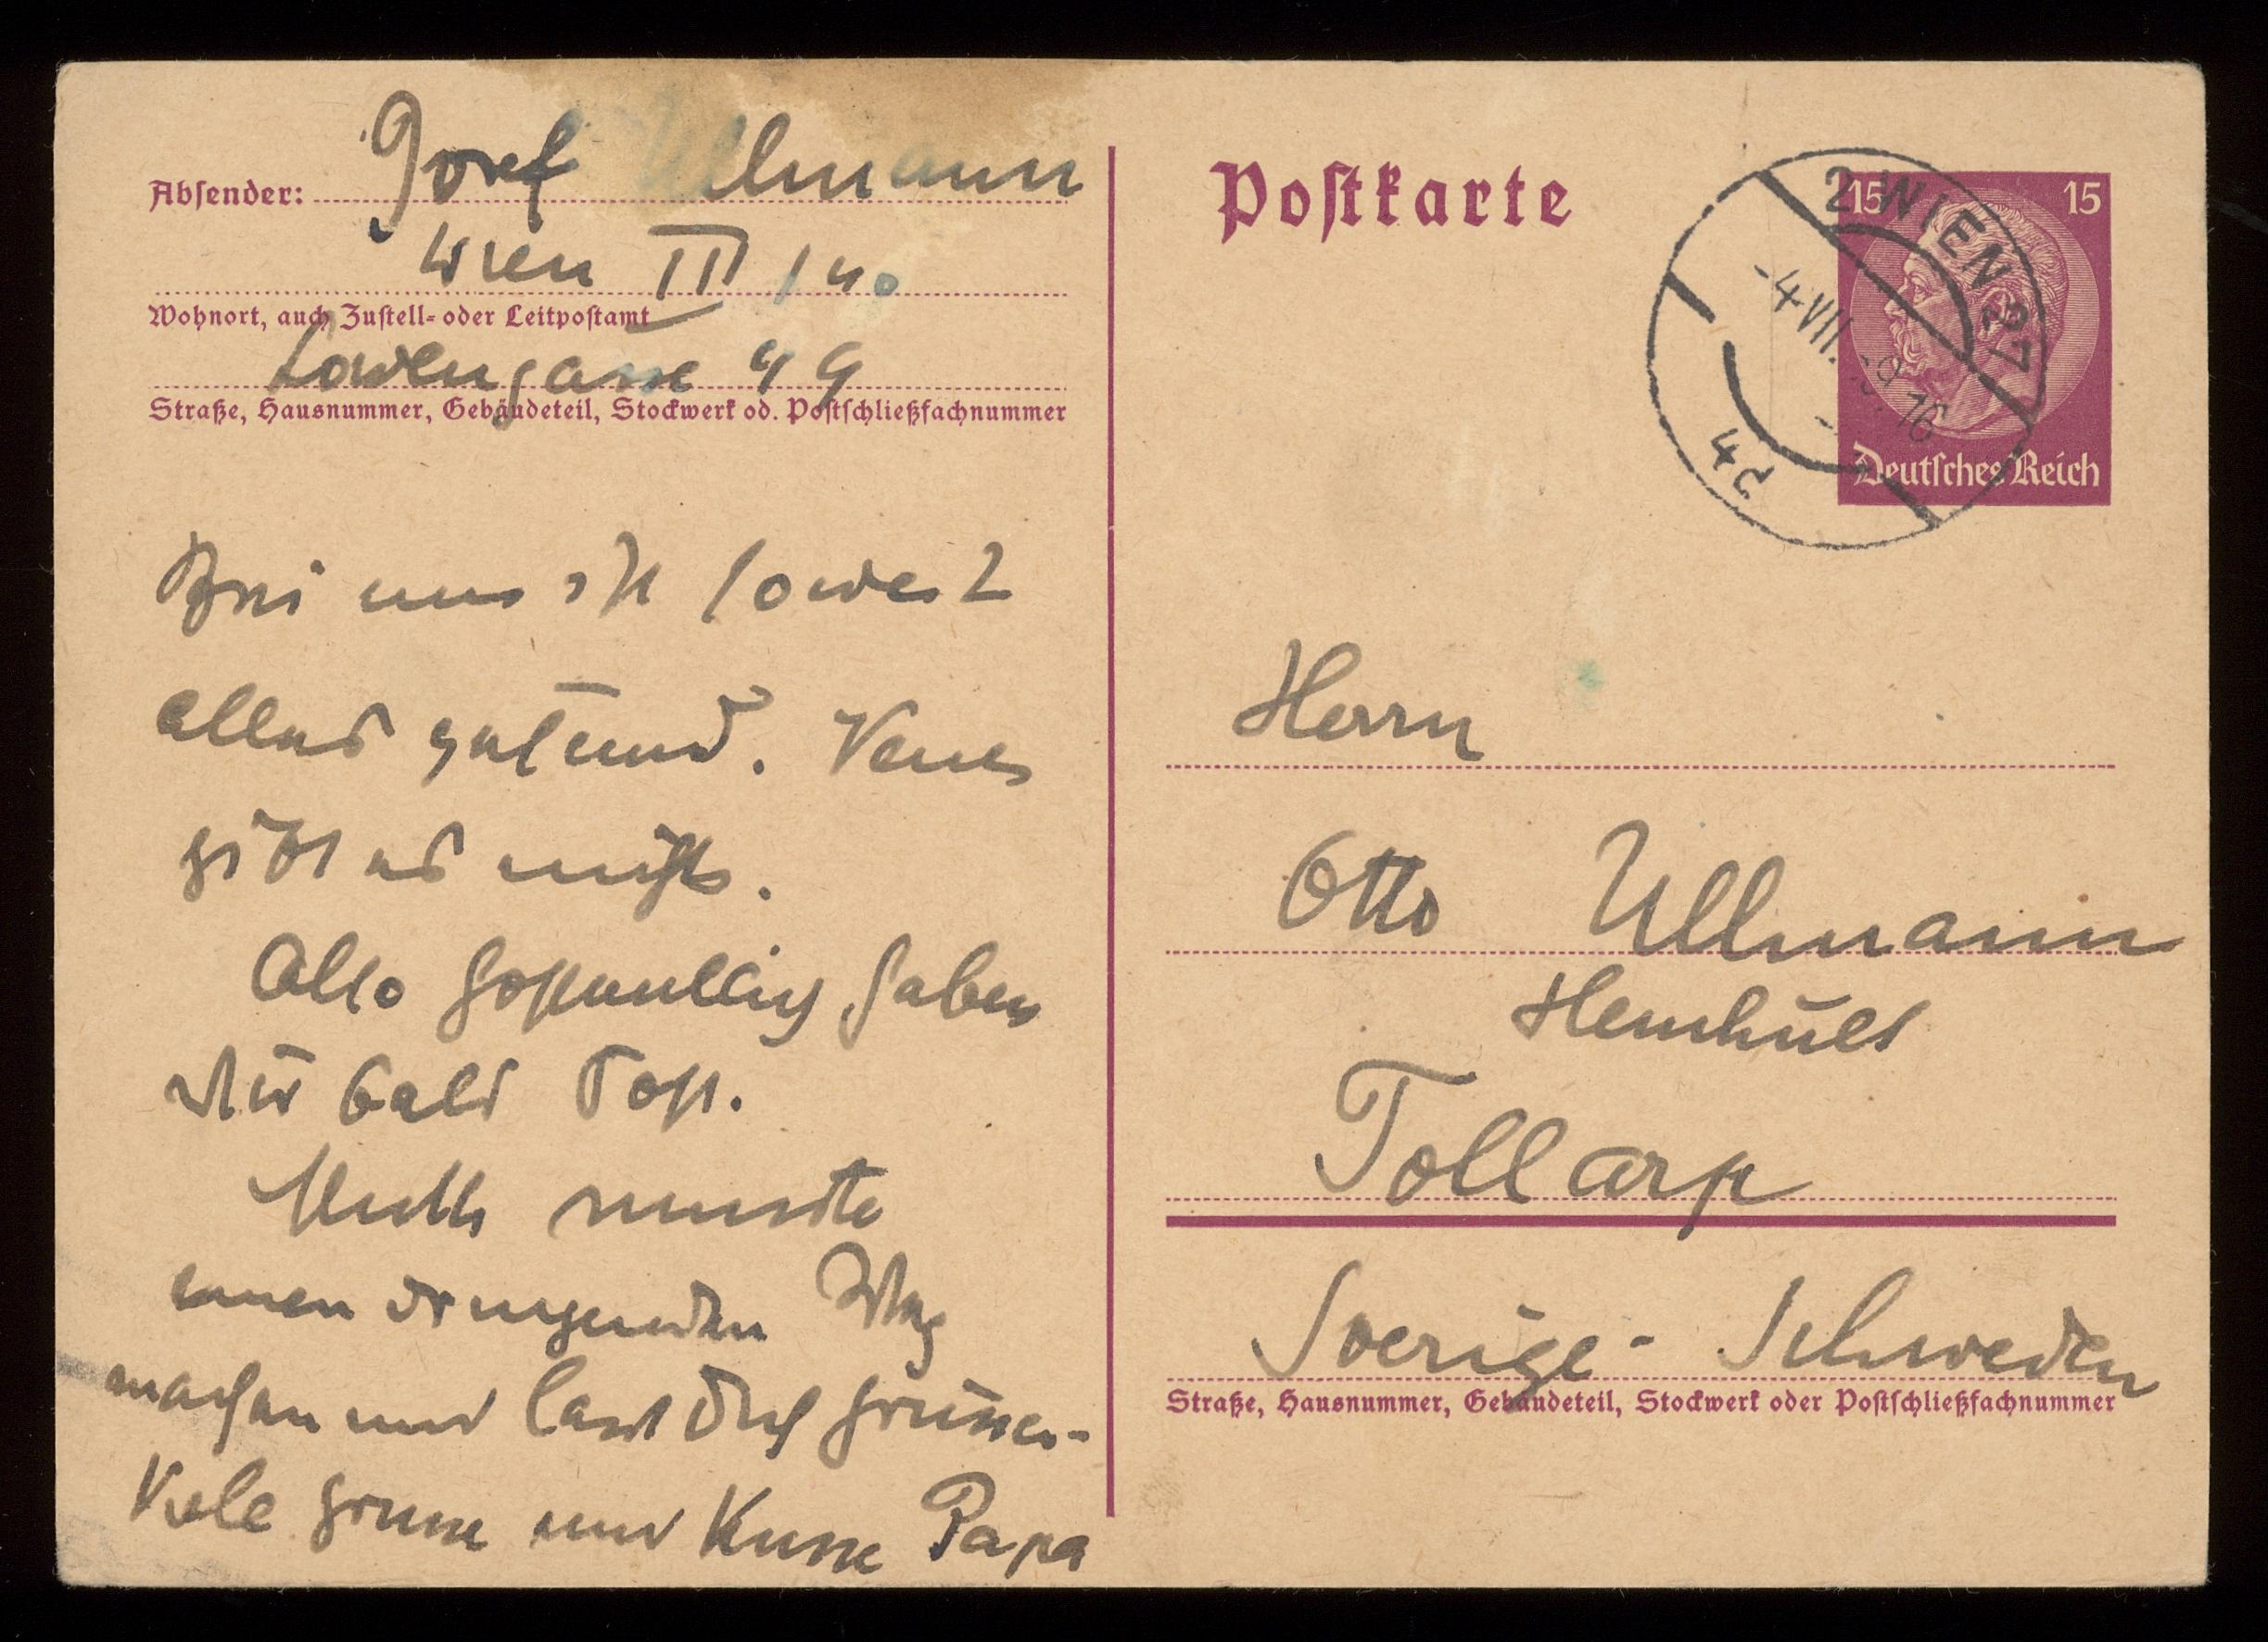 Absender: Josef Ullmann
Wien III/40
Wohnort, auch Zustell- oder Leitpostamt
Löwengasse 49
Straße, Hausnummer, Gebäudeteil, Stockwerk od. Postschließfachnummer
Bei uns ist soweit
alles gesund. Neues
gibt es nichts.
Also hoffentlich haben
wir bald Post.
Mutti musste
einen dringenden Weg
machen und lässt Dich grüssen-
Viele Grüsse und Küsse Papa
Postkarte
2 WIEN 27
-4.VIII. 16
4d
15 15
Deutsches Reich
Herrn
Otto Ullmann
Hemhult
Tollarp
Sverige - Schweden
Straße, Hausnummer, Gebäudeteil, Stockwerk oder Postschließfachnummer